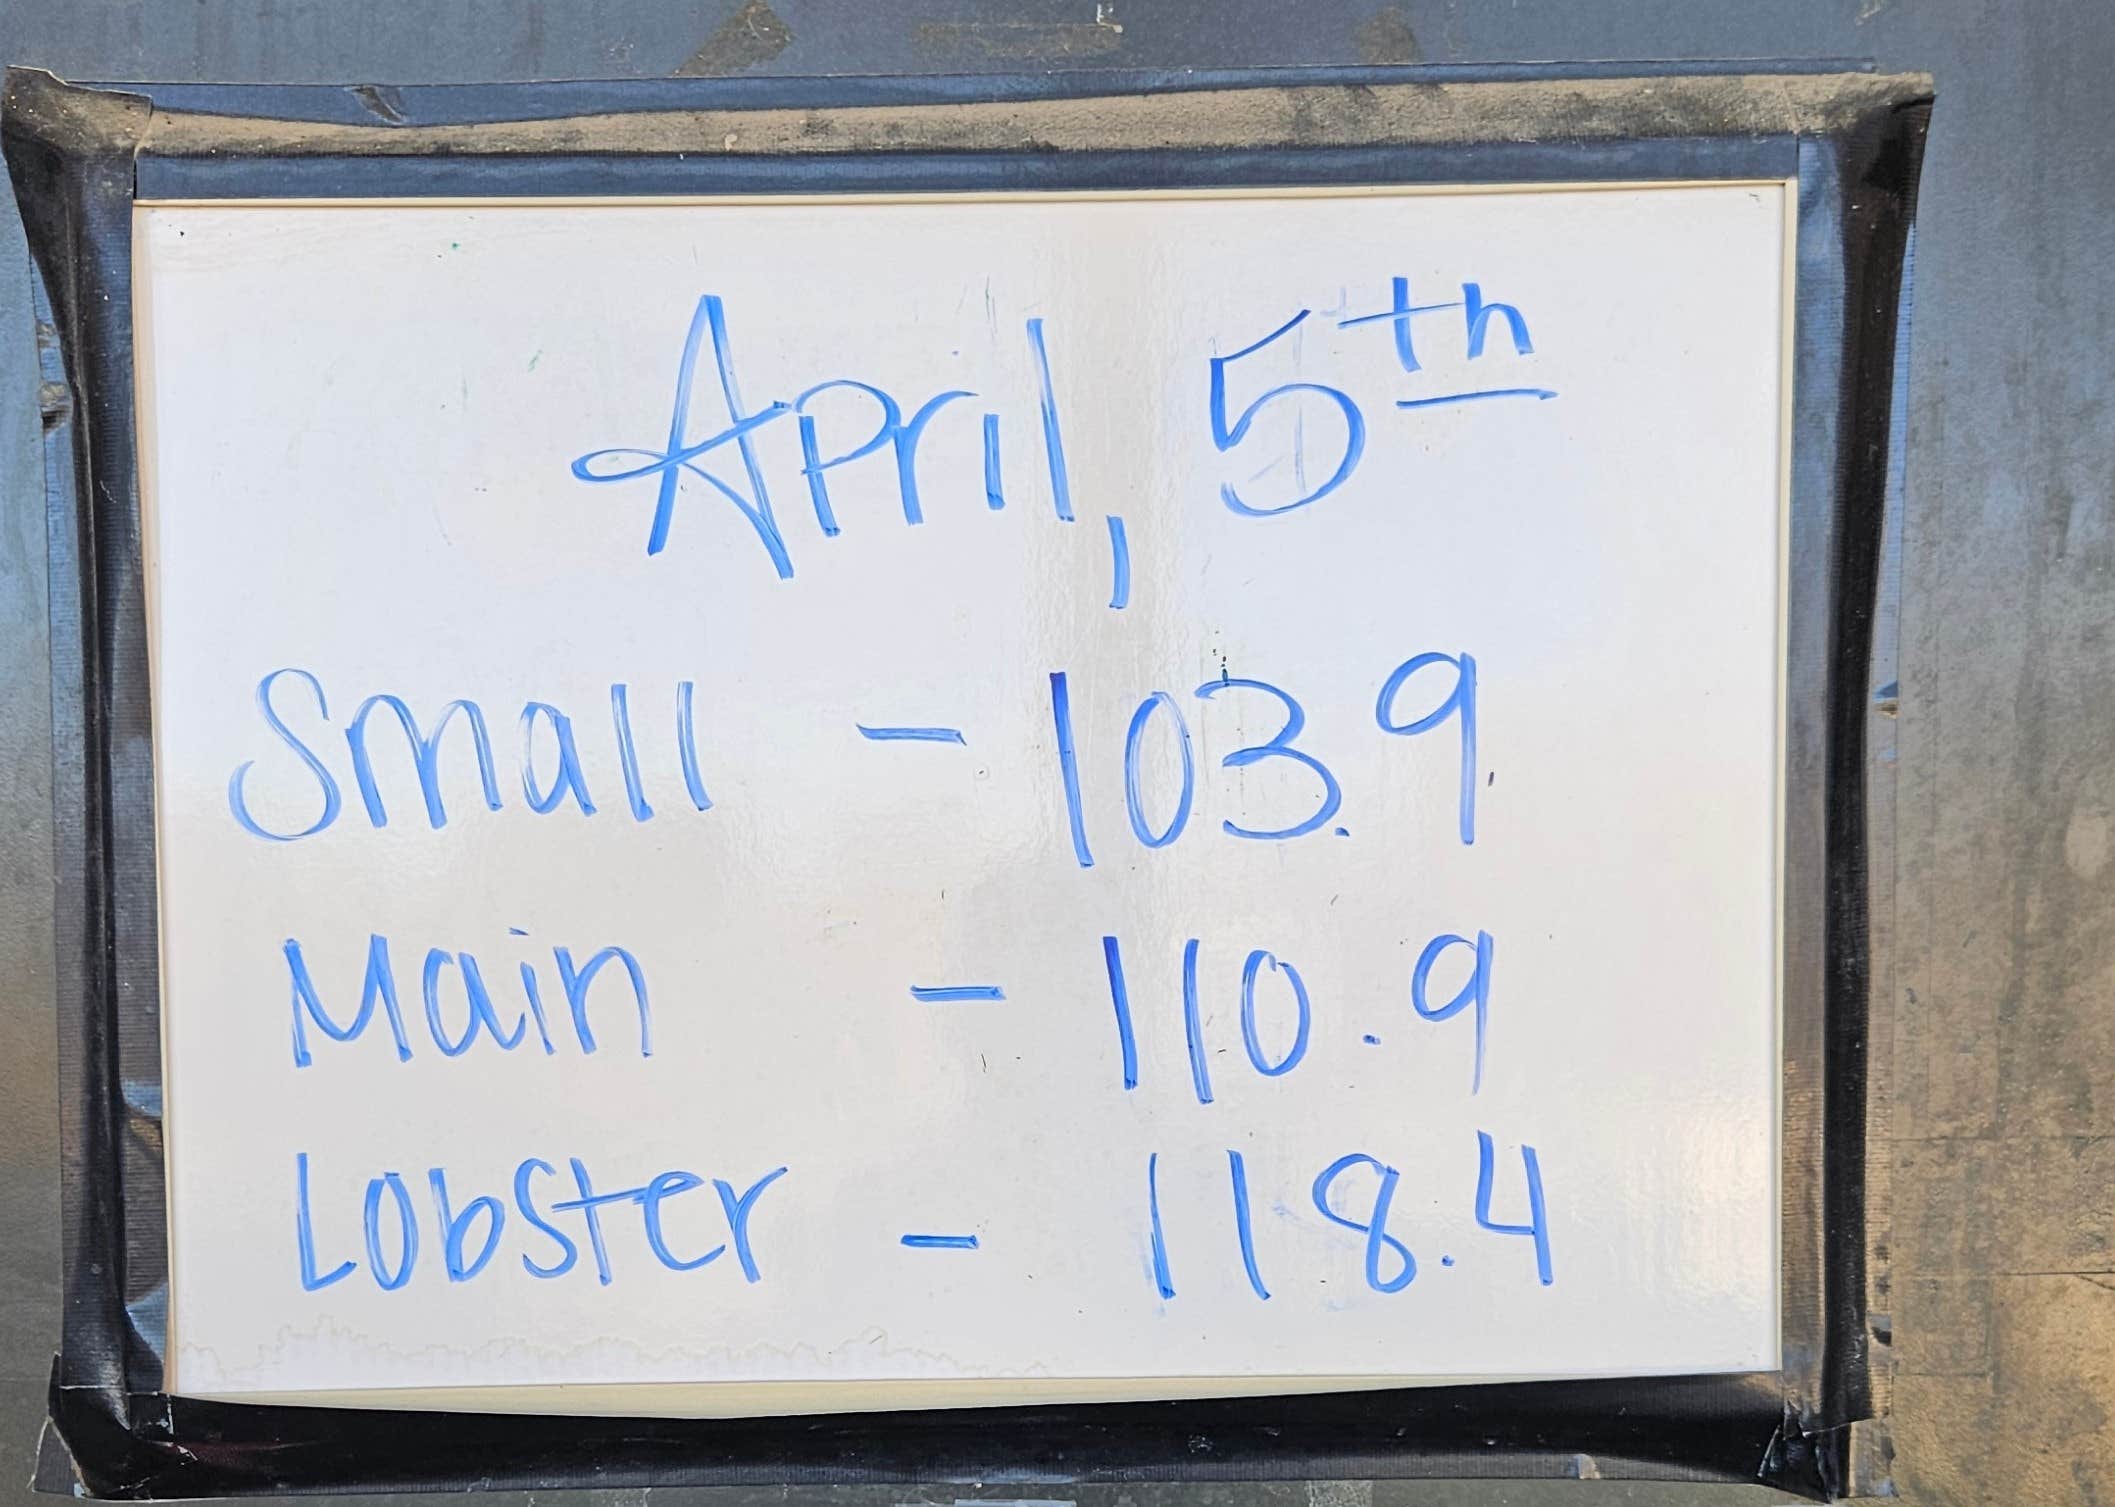 April, 5th
Small - 103.9
Main - 110.9
Lobster - 118.4